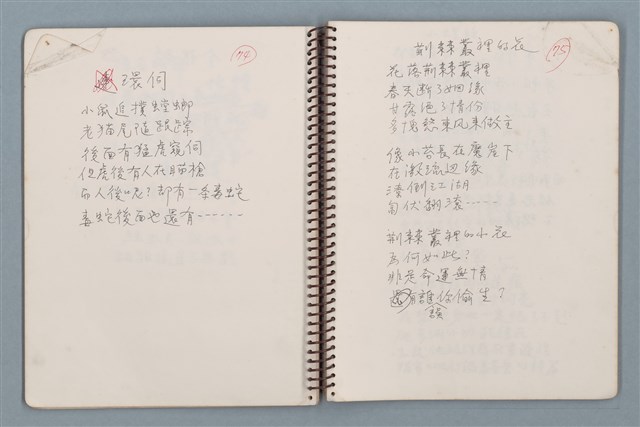 74
環伺
小鼠近撲螳螂
老猫尾隨跟踪
後面有猛虎窺伺
但虎後有人在瞄槍
而人後呢？却有一条毒蛇
毒蛇後面也還有……
75
荊棘叢裡的花
花落荊棘叢裡
春天斷了姻緣
甘露絕了情份
愁東风来做主
像小苔長在懸崖下
在邊緣
潦倒江湖
匍伏翻滾……
荊棘叢裡的小花
為何如此？
非是命運無情
誰你偷生？